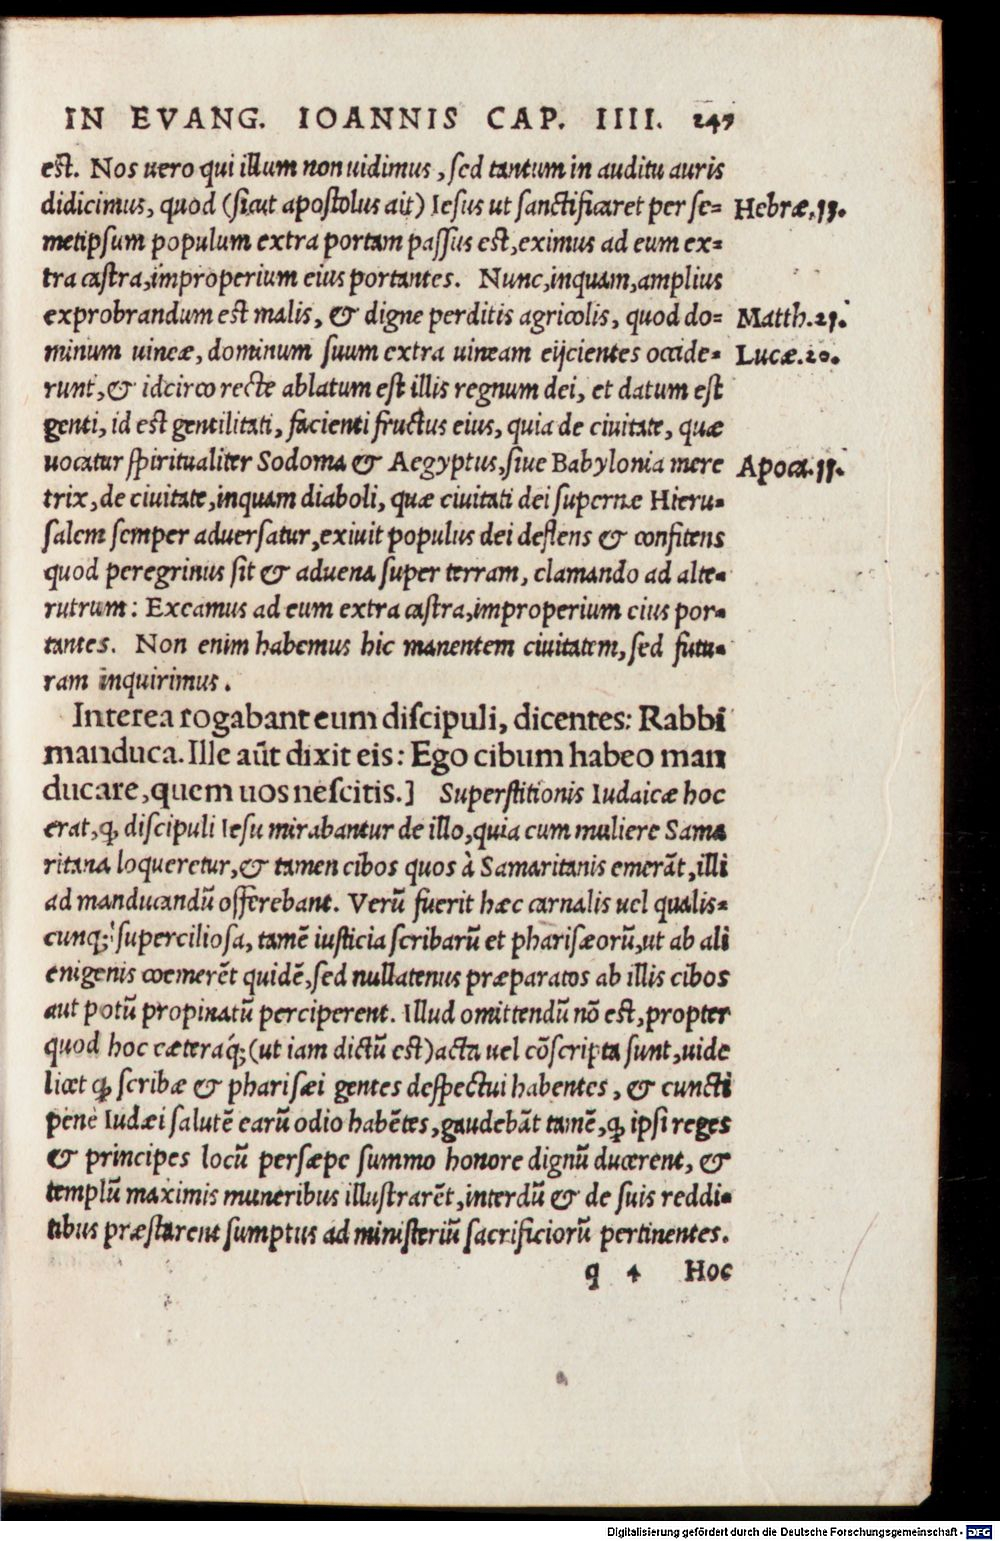 IN EVANG. IOANNIS CAP. IIII. 247
est. Nos uero qui illum non uidimus, sed tantum in auditu auris
didicimus, quod (sicut apostolus ait) Iesus ut sanctificaret per se= Hebræ.13.
metipsum populum extra portam passus est, eximus ad eum ex=
tra castra, improperium eius portantes. Nunc, inquam, amplius
exprobrandum est malis, & digne perditis agricolis, quod do= Matth.21.
minum uineæ, dominum suum extra uineam eijcientes occide= Lucæ.20.
runt, & idcirco recte ablatum est illis regnum dei, et datum est
genti, id est gentilitati, facienti fructus eius, quia de ciuitate, quæ
uocatur spiritualiter Sodoma & Aegyptus, siue Babylonia mere Apoca.11.
trix, de ciuitate, inquam diaboli, quæ ciuitati dei supernæ Hieru=
salem semper aduersatur, exiuit populus dei deflens & confitens
quod peregrinus sit & aduena super terram, clamando ad alte=
rutrum: Exeamus ad eum extra castra, improperium eius por=
tantes. Non enim habemus hic manentem ciuitatem, sed futu=
ram inquirimus.
Interea rogabant eum discipuli, dicentes: Rabbi
manduca. Ille aūt dixit eis: Ego cibum habeo man
ducare, quem uos nescitis.] Superstitionis Iudaicæ hoc
erat, ꝙ discipuli Iesu mirabantur de illo, quia cum muliere Sama
ritana loqueretur, & tamen cibos quos à Samaritanis emerāt, illi
ad manducandū offerebant. Verū fuerit hæc carnalis uel qualis=
cunq; superciliosa, tamē iusticia scribarū et pharisæorū, ut ab ali
enigenis coemerēt quidē, sed nullatenus præparatos ab illis cibos
aut potū propinatū perciperent. Illud omittendū nō est, propter
quod hoc cæteraq́; (ut iam dictū est) acta uel cōscripta sunt, uide
licet ꝙ scribæ & pharisæi gentes despectui habentes, & cuncti
pene Iudæi salutē earū odio habētes, gaudebāt tamē, ꝙ ipsi reges
& principes locū persæpe summo honore dignū ducerent, &
templū maximis muneribus illustrarēt, interdū & de suis reddi=
tibus præstarent sumptus ad ministeriū sacrificiorū pertinentes.
q 4 Hoc
Digitalisierung gefördert durch die Deutsche Forschungsgemeinschaft - DFG